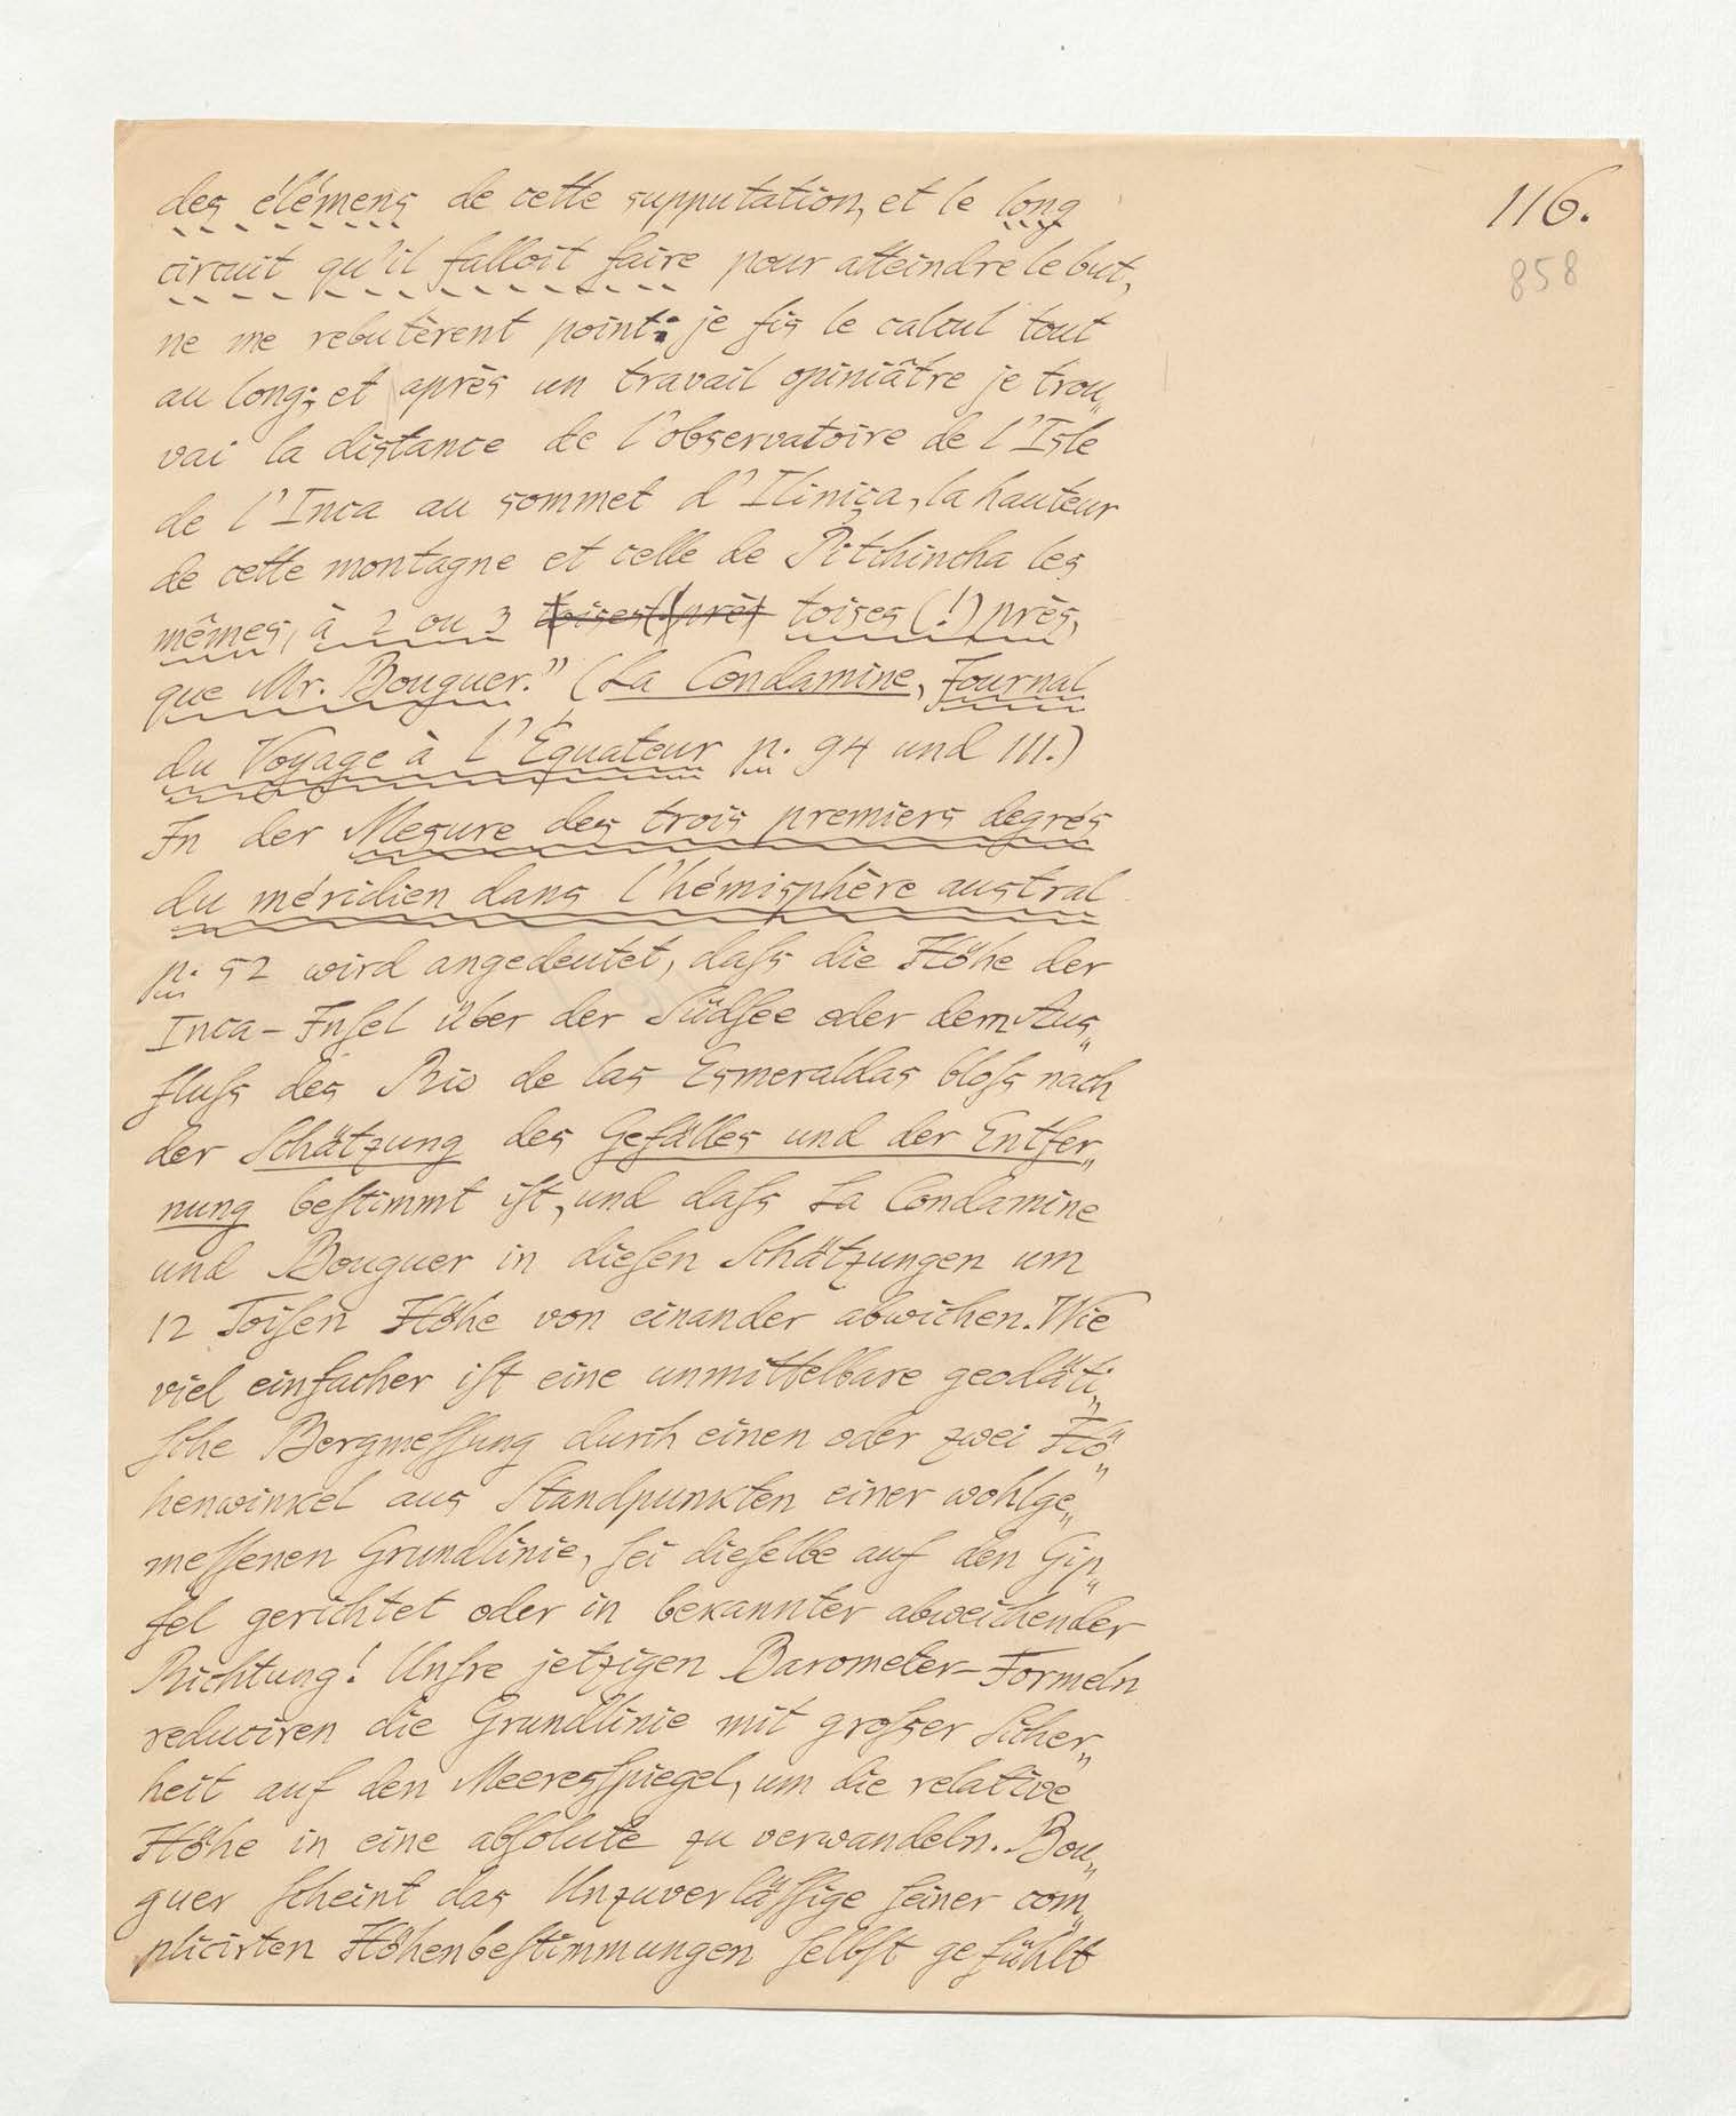 116.
858
des élémens de cette supputation, et le long
circuit qu'il falloit faire pour atteindre le but,
ne me rebutèrent point: je fis le calcul tout
au long; et après un travail opiniâtre je trou„
vai la distance de l'observatoire de l'Isle
de l'Inca au sommet d'Iliniça, la hauteur
de cette montagne et celle de Pitchincha les
mêmes, à 2 ou 3 toises (!) près,
que Mr. Bouguer.” (La Condamine, Journal
du Voyage à l'Équateur p. 94 und 111.)
In der Mesure des trois premiers degrés
du méridien dans l'hémisphère austral
p. 52 wird angedeutet, daſs die Höhe der
Inca-Inſel über der Südſee oder dem Aus„
fluſs des Rio de las Esmeraldas bloſs nach
der Schätzung des Gefälles und der Entfer„
nung beſtimmt iſt, und daſs La Condamine
und Bouguer in dieſen Schätzungen um
12 Toiſen Höhe von einander abwichen. Wie
viel einfacher iſt eine unmittelbare geodäti„
ſche Bergmeſſung durch einen oder zwei Hö„
henwinkel aus Standpunkten einer wohlge„
meſſenen Grundlinie, ſei dieſelbe auf den Gip„
fel gerichtet oder in bekannter abweichender
Richtung! Unſre jetzigen Barometer-Formeln
reduciren die Grundlinie mit groſser Sicher„
heit auf den Meeresſpiegel, um die relative
Höhe in eine abſolute zu verwandeln. Bou„
guer ſcheint das Unzuverläſſige ſeiner com„
plicirten Höhenbeſtimmungen ſelbſt gefühlt